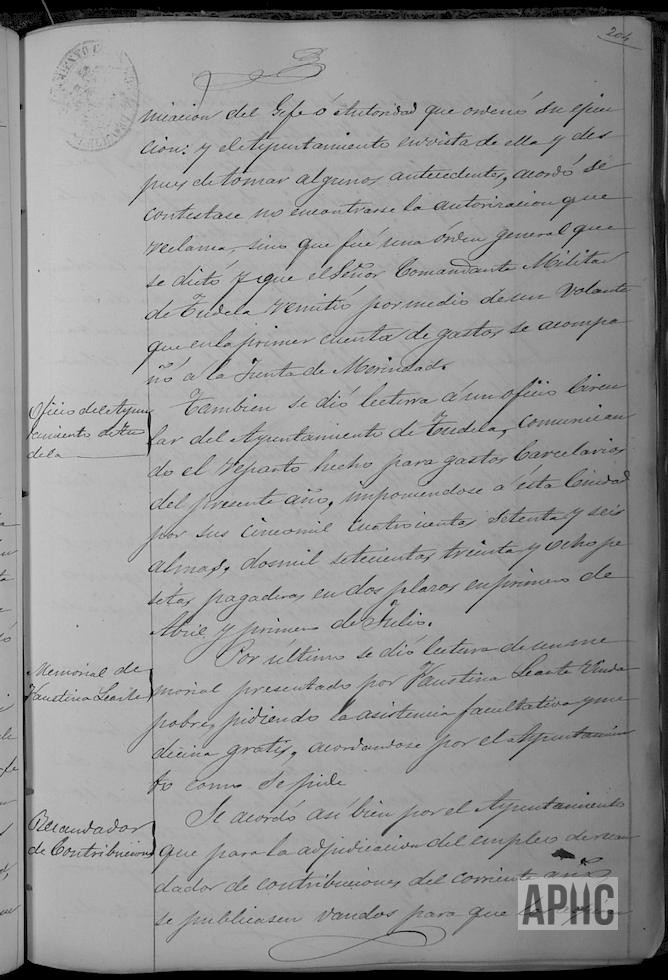 204
niacion del Gefe ó Autoridad que ordenó su ejecu
cion: y el Ayuntamiento en vista de ella y des
pues de tomar algunos antecedentes, acordó se
contestase no encontrarse la autorizacion que
reclama, sino que fué una órden general que
se dictó y que el Señor Comandante Militar
de Tudela remitió por medio de un volante
que en la primer cuenta de gastos se acompa
ñó á la Junta de Merindad.
Oficio del Ayun
tamiento de Tu
dela
Tambien se dió lectura á un oficio circu
lar del Ayuntamiento de Tudela, comunican
do el reparto hecho para gastos Carcelarios
del presente año, imponiendose á ésta Ciudad
por sus cincomil cuatrocientas setenta y seis
almas, dosmil setecientas treinta y ocho pe
setas pagaderas en dos plazos en primero de
Abril y primero de Julio.
Memorial de
Faustina Learte
Por último se dió lectura de un me
morial presentado por Faustina Learte Viuda
pobre, pidiendo la asistencia facultativa y me
dicina gratis, acordandose por el Ayuntamien
to como se pide
Recaudador
de Contribuciones
Se acordó asi bien por el Ayuntamiento
que para la adjudicacion del empleo de recau
dador de contribuciones del corriente año
se publicasen vandos para que
APHC